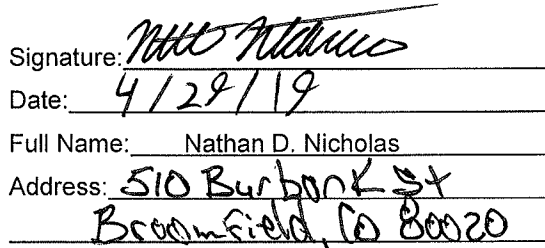 Signature:
Date: 4/29/19
Full Name: Nathan D. Nicholas
Address: 510 Burbank St
Broomfield, CO 80020